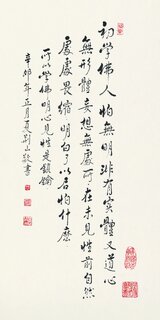 初學佛人怕無明非有實體又道心
無形體妄想無處可在未見性前自然
處處畏縮明白了以名怕什麼
所以學佛明心見性是鎖鑰
辛卯年正月夏荆山敬書